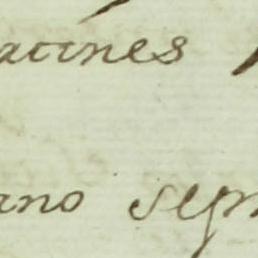 atines
ano sep